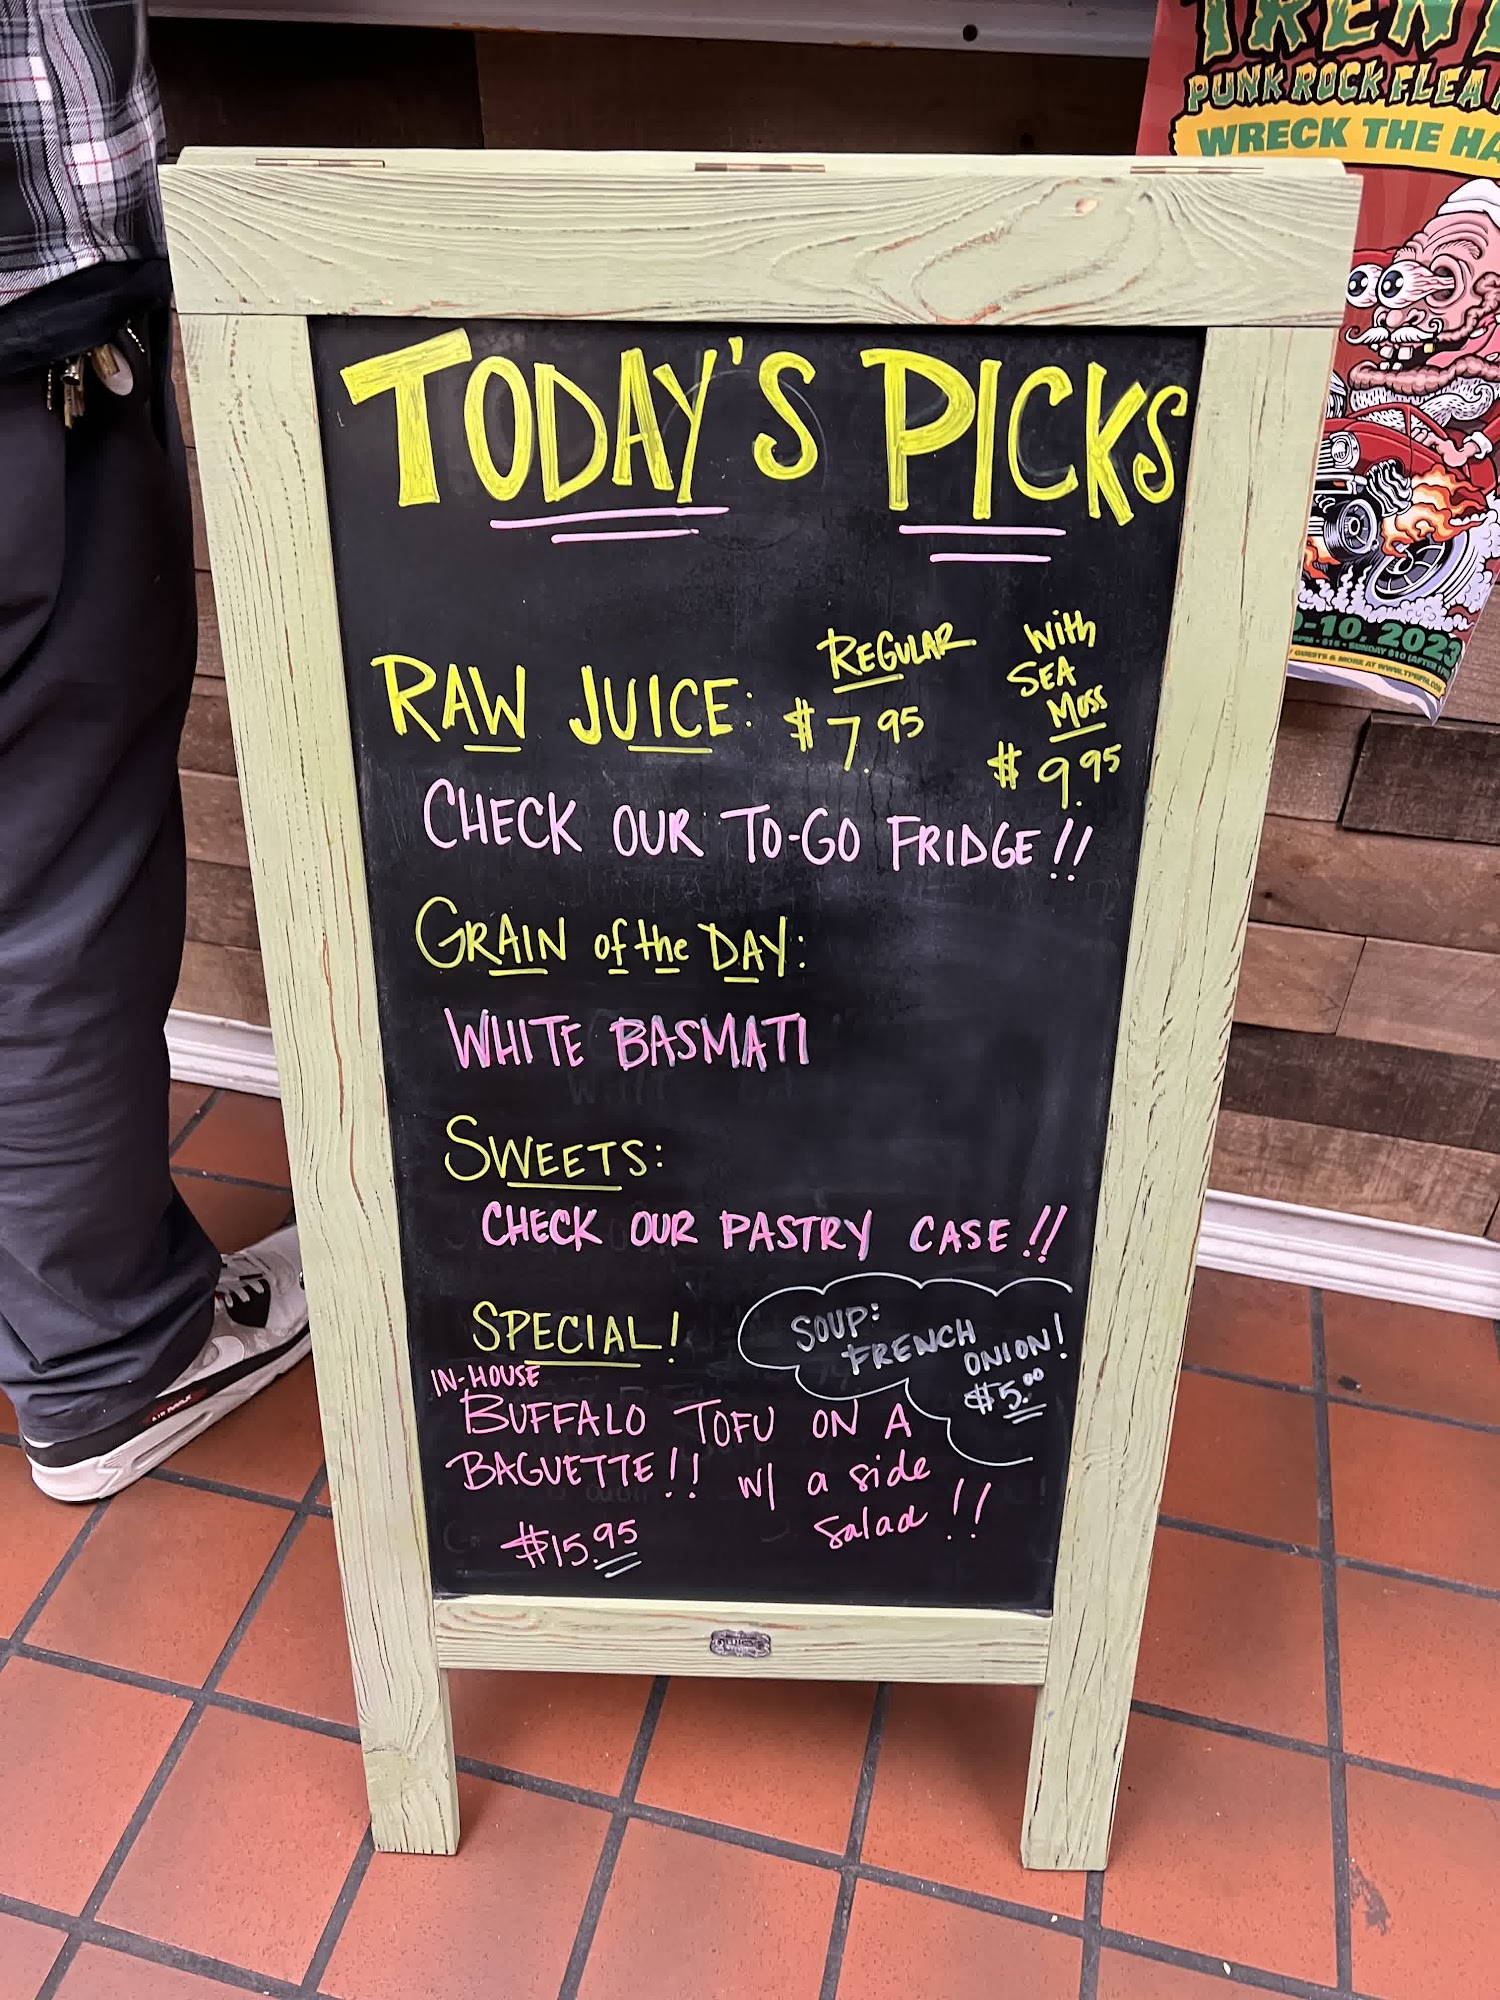 TODAY'S PICKS
RAW JUICE:
REGULAR
$7.95
WITH
SEA
MOSS
$9.95
CHECK OUR TO-GO FRIDGE!!
GRAIN of the DAY:
WHITE BASMATI
SWEETS:
CHECK OUR PASTRY CASE!!
SPECIAL!
SOUP:
FRENCH
ONION!
$5.00
IN-HOUSE
BUFFALO TOFU ON A
BAGUETTE!! w/ a side
salad!!
$15.95
TREN
PUNK ROCK FLEA
WRECK THE HA
-10, 2023